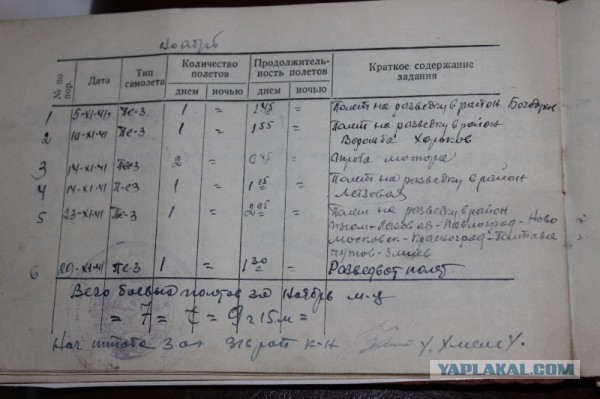 Ноябрь
№ по пор.
Дата
Тип самолета
Количество полетов
днем
ночью
Продолжительность полетов
днем
ночью
Краткое содержание задания
1 5-XI-41 Пе-3 1 = 1 45 = Полет на разведку в район Богодухов
2 10-XI-41 Пе-3 1 = 1 55 = Полет на разведку в район
Ворожба Хорьков
3 14-XI-41 Пе-3 2 = 0 45 = мотора
4 14-XI-41 Пе-3 1 = 1 15 = Полет на разведку в район
Лозовая
5 23-XI-41 Пе-3 1 = 2 05 = Полет на разведку в район
Изюм-Лозовая-Павлоград-Ново
московск-Красноград-Полтава
Чутов-Змиев
6 29-XI-41 Пе-3 1 = 1 30 = Разведвот полет
Всего боевых полетов за Ноябрь м-ц
= 7 = 9 ч 15 м =
Нач штаба 3 к-н
YAPLAKAL.COM